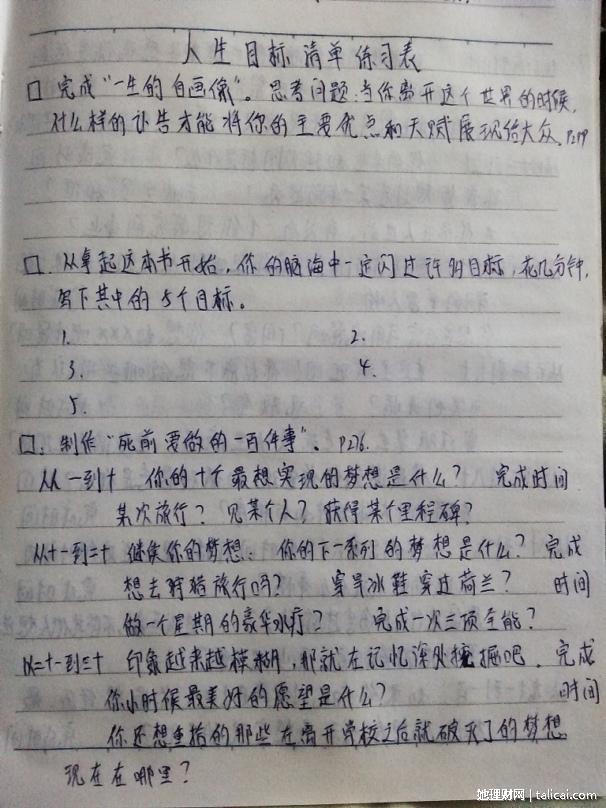 人生目标清单练习表
□ 完成“一生的自画像”。思考问题:当你离开这个世界的时候,
什么样的讣告才能将你的主要优点和天赋展现给大众。P219
□. 从拿起这本书开始,你的脑海中一定闪过许多目标,花几分钟,
写下其中的5个目标。
1. 2.
3. 4.
5.
□. 制作“死前要做的一百件事”。P276.
从一到十 你的十个最想实现的梦想是什么? 完成时间
某次旅行?见某个人?获得某个里程碑?
从十一到二十 继续你的梦想. 你的下一系列的梦想是什么? 完成
想去狩猎旅行吗? 穿旱冰鞋穿过荷兰? 时间
做一个星期的豪华水疗? 完成一次三项全能?
从二十一到三十 印象越来越模糊,那就在记忆深处挖掘吧. 完成
你小时候最美好的愿望是什么? 时间
你还想重拾的那些在离开学校之后就破灭了的梦想
现在在哪里?
她理财网 | talicai.com